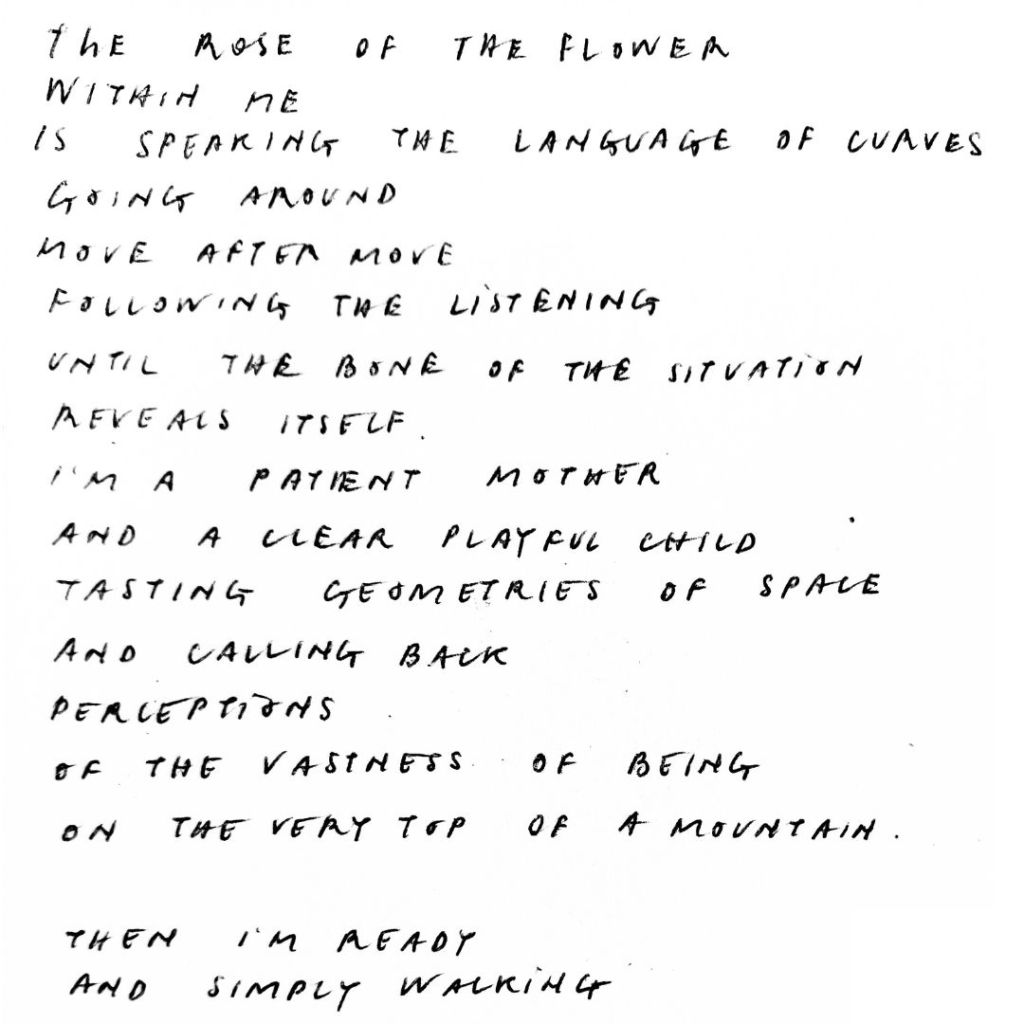 THE ROSE OF THE FLOWER
WITHIN ME
IS SPEAKING THE LANGUAGE OF CURVES
GOING AROUND
MOVE AFTER MOVE
FOLLOWING THE LISTENING
UNTIL THE BONE OF THE SITUATION
REVEALS ITSELF.
I'M A PATIENT MOTHER
AND A CLEAR PLAYFUL CHILD
TASTING GEOMETRIES OF SPACE
AND CALLING BACK
PERCEPTIONS
OF THE VASTNESS OF BEING
ON THE VERY TOP OF A MOUNTAIN.
THEN I'M READY
AND SIMPLY WALKING